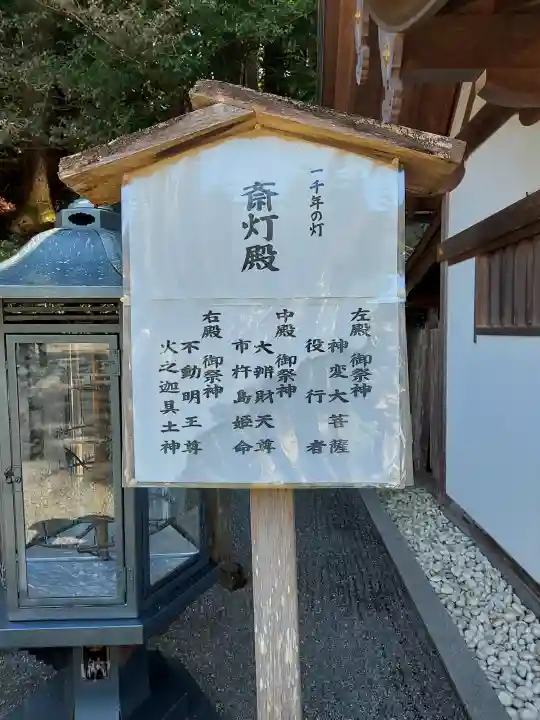 一千年の灯
斎灯殿
左殿 御祭神
神変大菩薩
役行者
中殿 御祭神
大辨財天尊
市杵島姫命
右殿 御祭神
不動明王尊
火之迦具土神